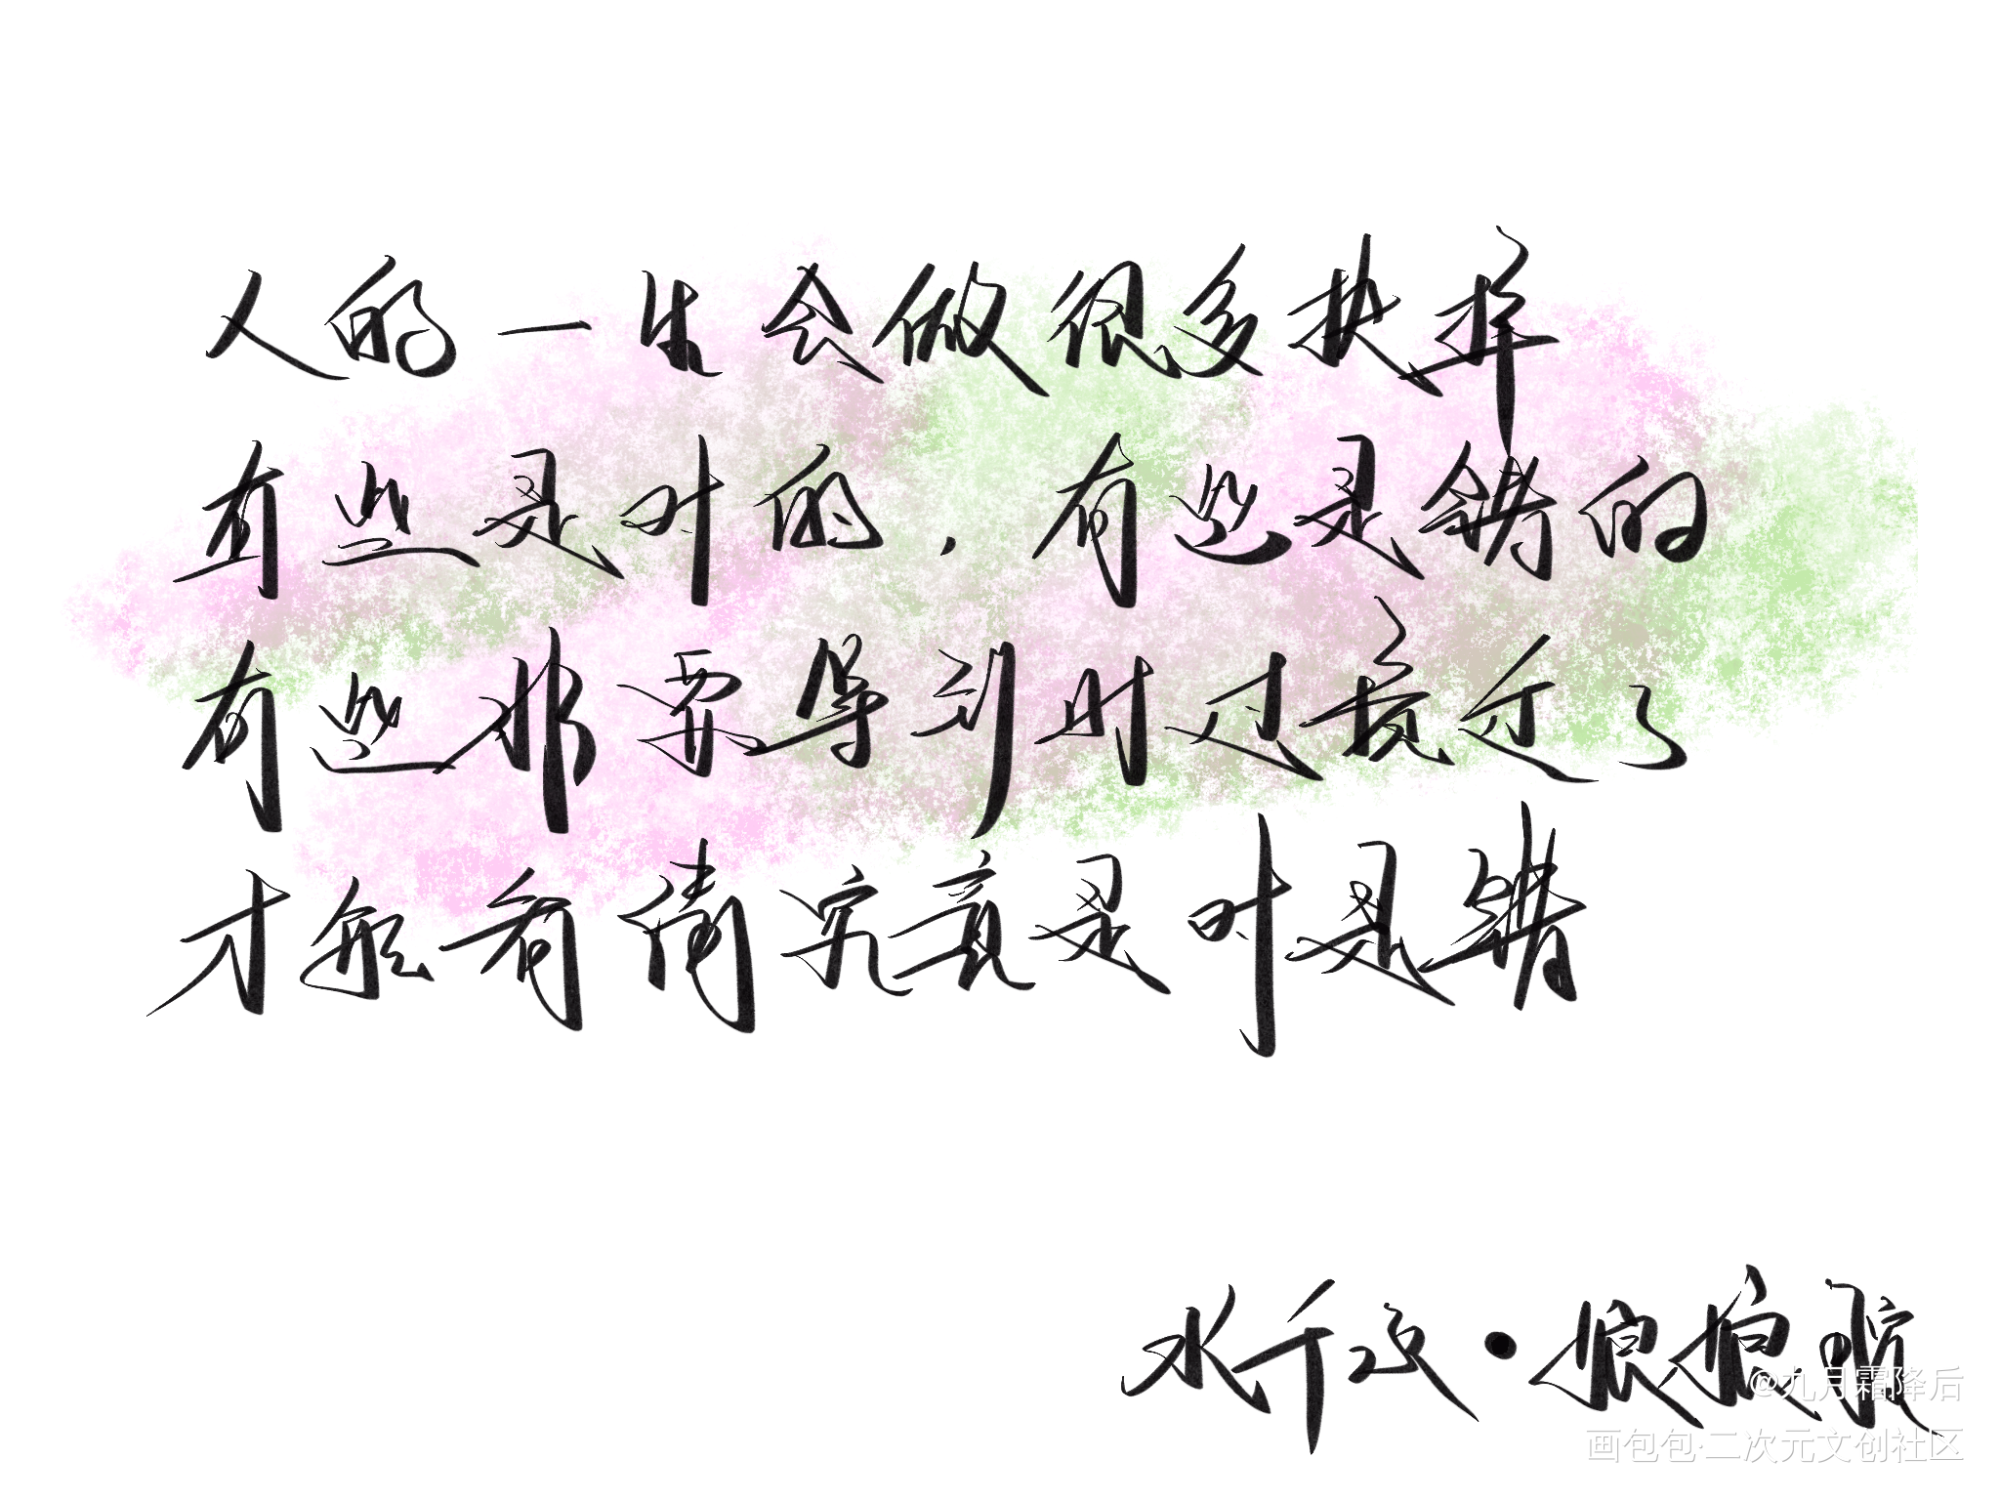 人的一生会做很多抉择
有些是对的，有些是错的
有些却要等到时过境迁了
才能看清究竟是对是错
水千丞·娘娘腔
@九月霜降后
画包包·二次元文创社区